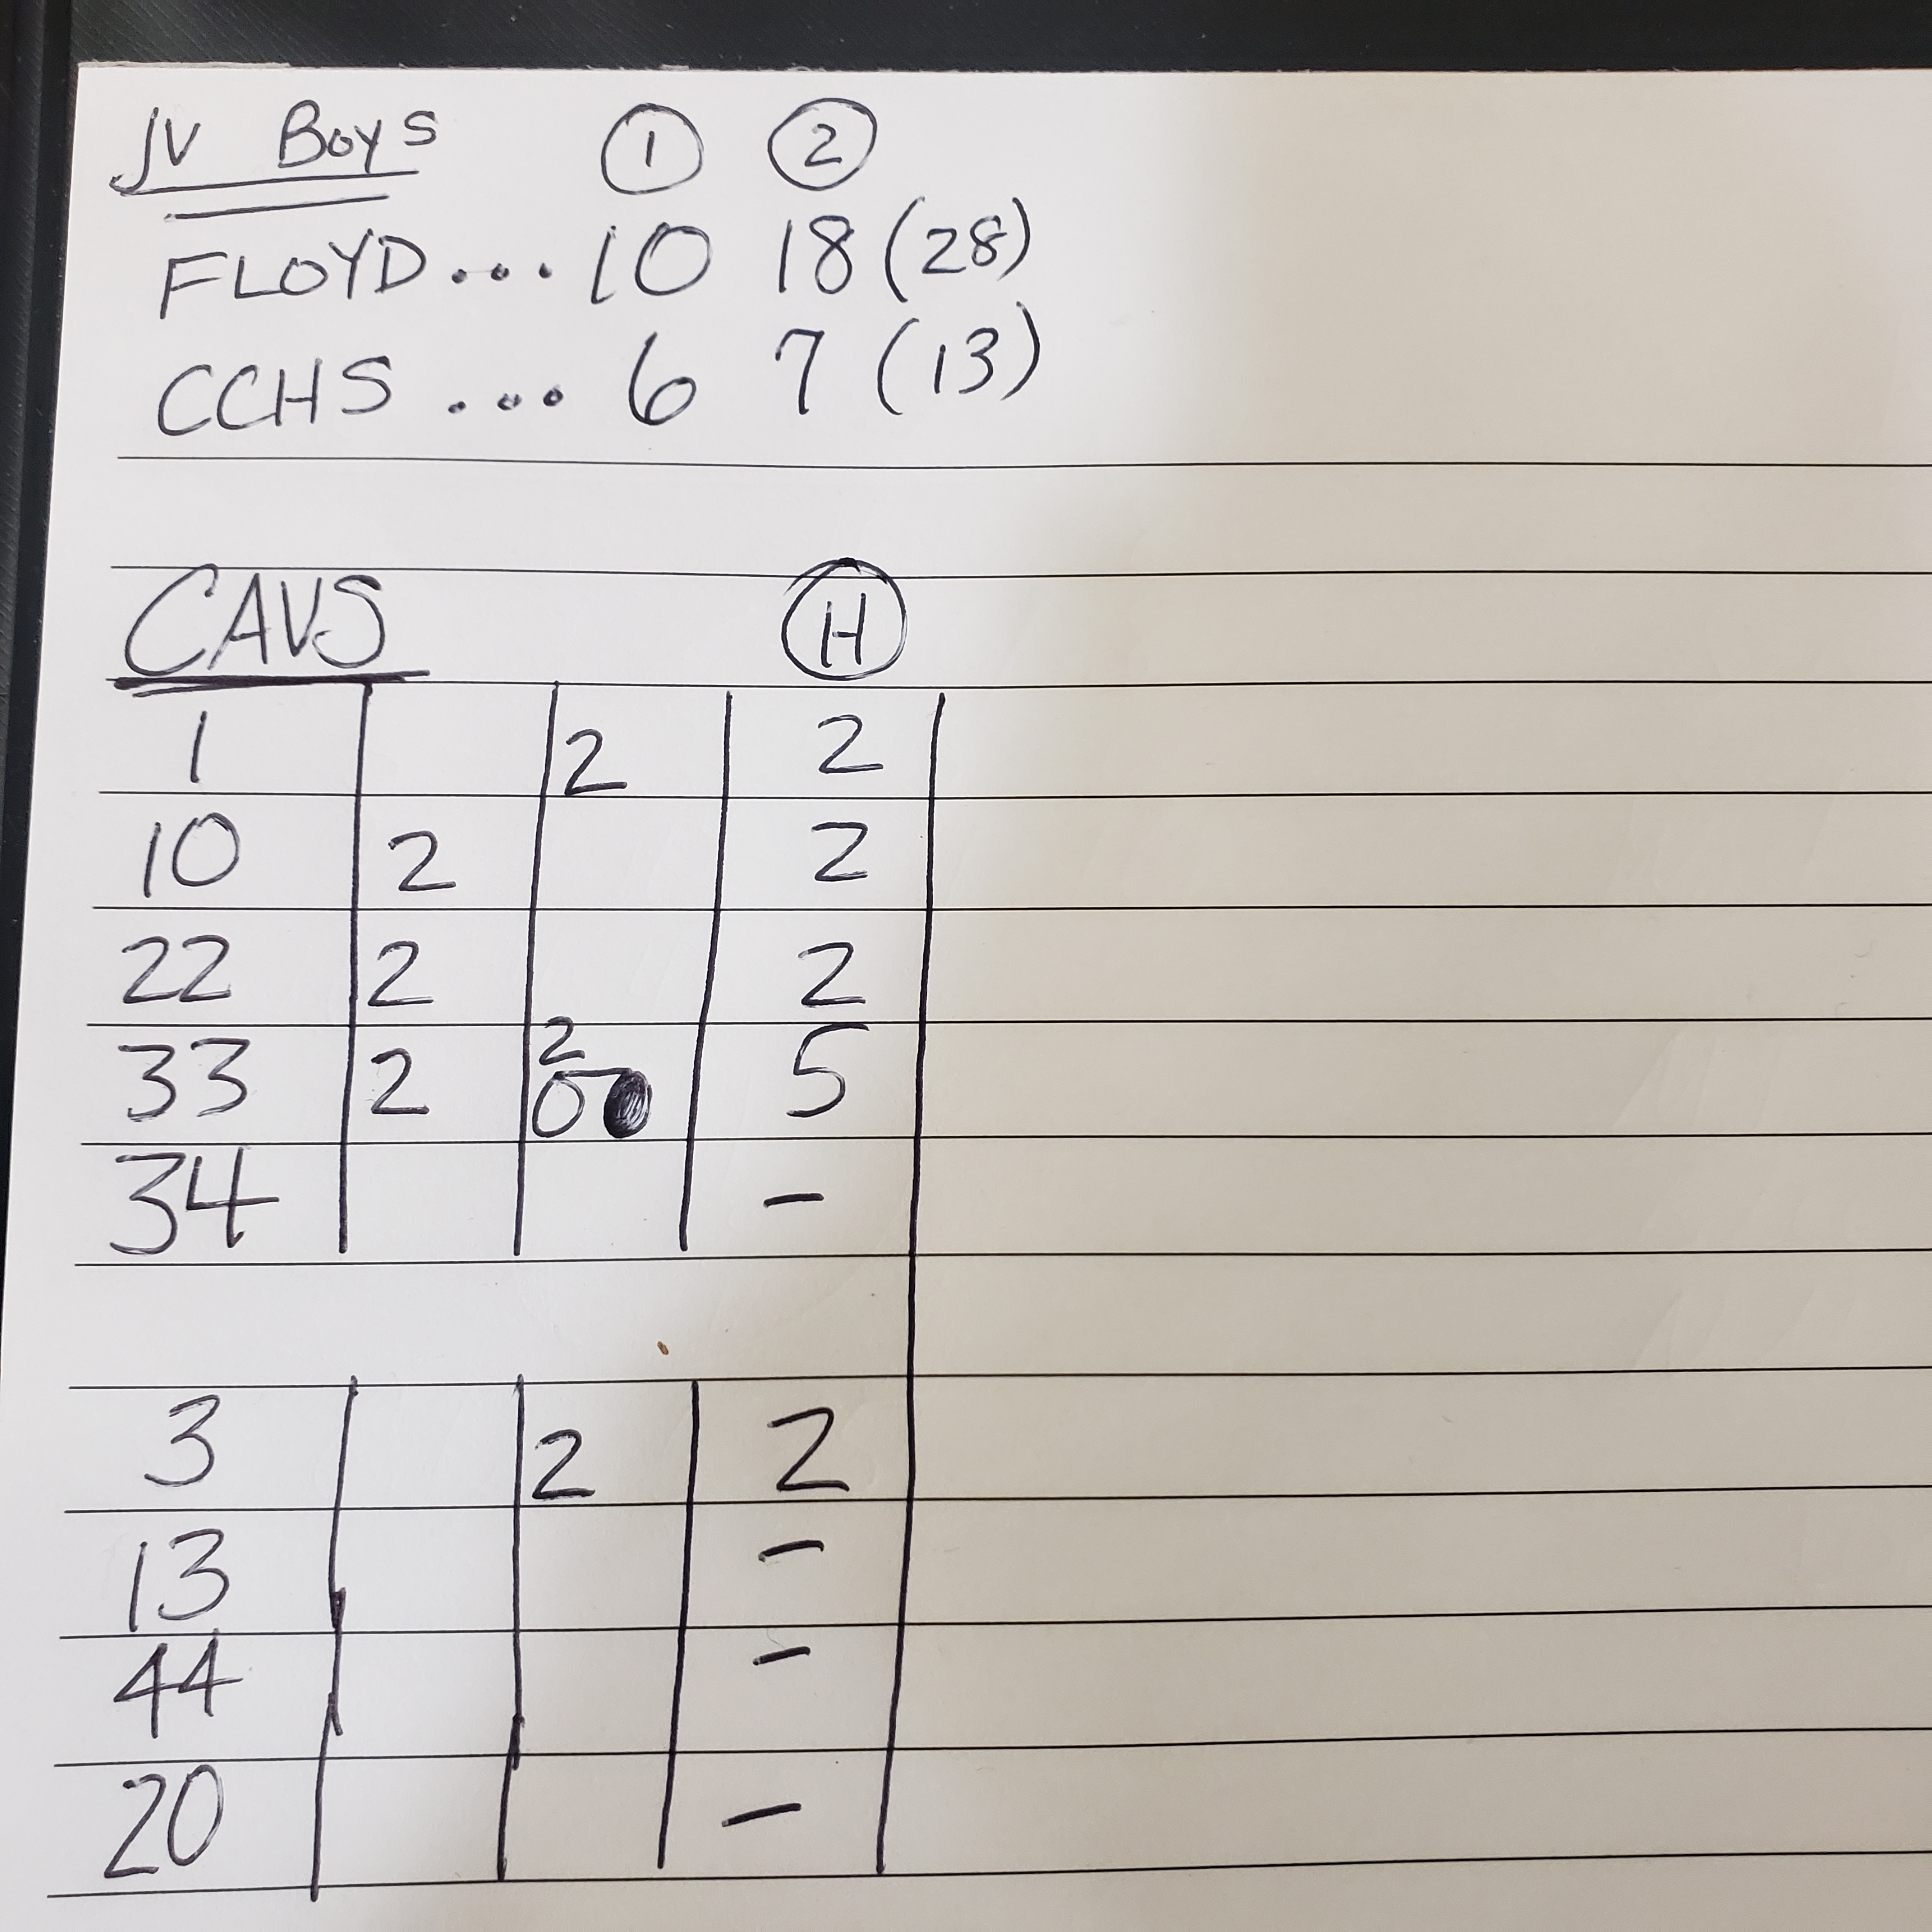 JV Boys 1 2
FLOYD... 10 18 (28)
CCHS ... 6 7 (13)
CAVS H
1 2 2
10 2 2
22 2 2
33 2 2 0 5
34 -
3 2 2
13 -
44 -
20 -